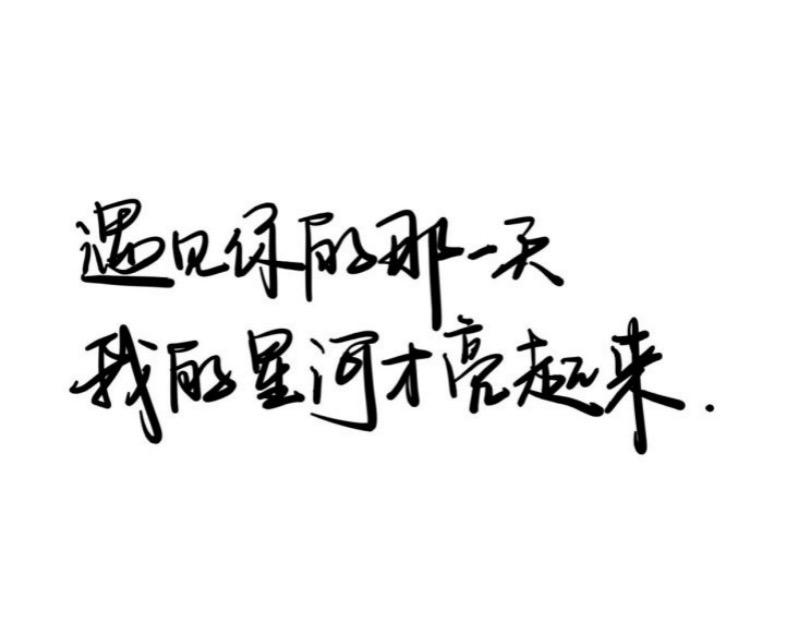 遇见你的那一天
我的星河才亮起来.